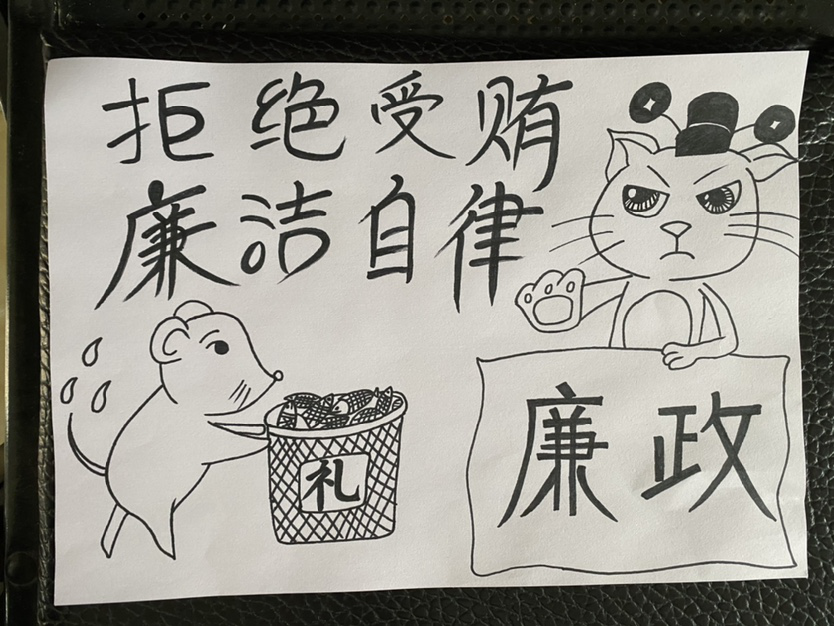 拒绝受贿
廉洁自律
礼
廉政